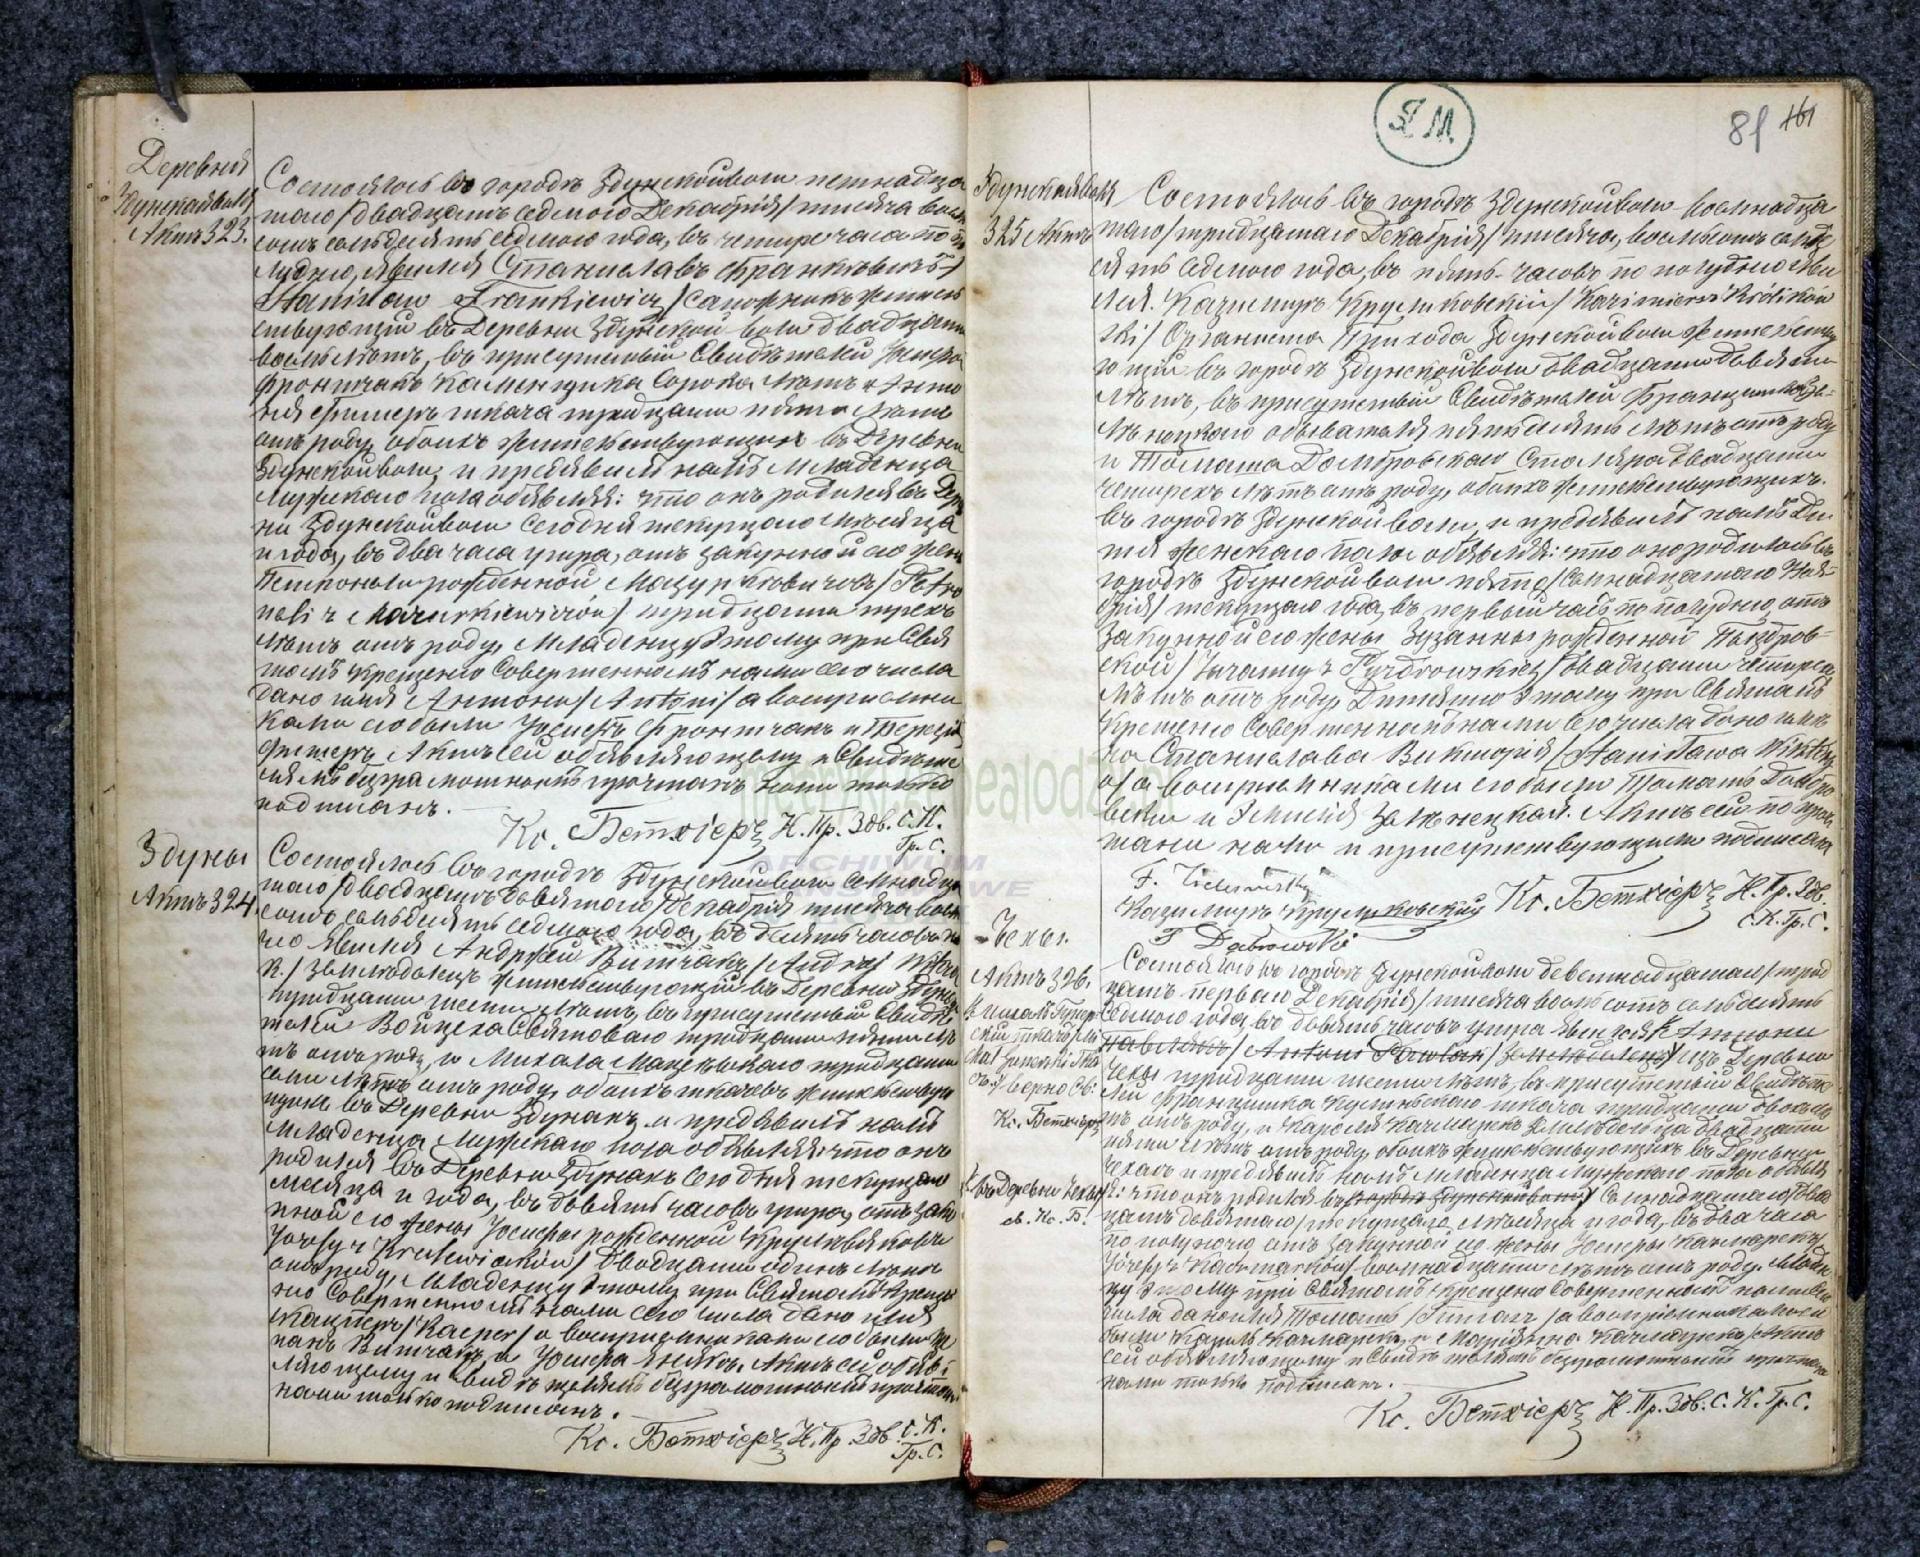 Деревня
Здунскаявола
Актъ 323.
Состоялось въ городѣ Здунскойволи пятнадца
таго /двадцать седьмого Декабря/ мѣсяца восемь
сотъ семьдесятъ седьмого года, въ четыре часа по по
лудню, явился Станиславъ Франкѣвичъ /
Stanisław Frankiewicz / сапожникъ житель
ствующій въ Деревни Здунской воли двадцати
восемь лѣтъ, въ присутствіи Свидѣтелей Іосифа
Фронтчакъ каменщика сорока лѣтъ и Анто
нія Фишеръ ткача тридцати пяти лѣтъ
отъ роду, обоихъ жительствующихъ въ Деревни
Здунскойволи, и предъявилъ намъ младенца
мужескаго пола объявляя: что онъ родился въ Дерев
ни Здунскойволи сегодня текущаго мѣсяца
и года, въ два часа утра, отъ законной его жены
Петронели рожденной Мазуркевичовъ / Petro
neli z Mazurkiewiczów / тридцати трехъ
лѣтъ отъ роду, Младенцу этому при Свя
томъ крещеніи совершенномъ нами сего числа
дано имя Антони / Antoni / а воспріемни
ками его были Іосифъ Фронтчакъ и Терезія
Фишеръ. Актъ сей объявляющему и Свидѣте
лямъ безграмотнымъ прочитанъ нами только
подписанъ.
Кс. Бетхіеръ Н. Пр. Здв. С. К.
Гр. С.
Здуны
Актъ 324.
Состоялось въ городѣ Здунскойволи семнадца
таго /двадцать девятого/ Декабря мѣсяца восемь
сотъ семьдесятъ седьмого года, въ десять часовъ
явился Андржей Витчакъ / Andrzej Witcza
k / земледѣлецъ жительствующій въ Деревни Здуны
тридцати шести лѣтъ, въ присутствіи Свидѣ
телей Войцеха Святоваго тридцати пяти лѣ
тъ отъ роду, и Михала тридцати
семи лѣтъ отъ роду, обоихъ ткачевъ жительствую
щихъ въ Деревни Здунахъ, и предъявилъ намъ
младенца мужескаго пола объявляя: что онъ
родился въ Деревни Здунахъ сего дня текущаго
мѣсяца и года, въ девять часовъ утра, отъ зако
нной его жены Іосифы рожденной
Józefy z двадцати одинъ лѣтъ
отъ роду, Младенцу этому при Святомъ креще
ніи совершенномъ нами сего числа дано имя
Кацперъ / Kacper / а воспріемниками его были
Витчакъ и Іосифа Актъ сей объяв
ляющему и Свидѣтелямъ безграмотнымъ прочитанъ
нами только подписанъ.
Кс. Бетхіеръ Н. Пр. Здв. С. К.
Гр. С.
Я. М.
81 161
Здунскаявола
325 Актъ
Состоялось въ городѣ Здунскойволи восемнадца
таго /тридцатаго Декабря/ мѣсяца, восемьсотъ семьде
сятъ седьмого года, въ пять часовъ по полудню яви
лся Казимиръ Круликовскій / Kazimierz Królikow
ski / Органиста Прихода Здунскойволи жительству
ющій въ городѣ Здунскойволи двадцати девяти
лѣтъ, въ присутствіи Свидѣтелей Францишка Зе-
лѣнецкаго обывателя пятьдесятъ лѣтъ отъ роду
и Томаша Домбровскаго Столяра двадцати
четырехъ лѣтъ отъ роду, обоихъ жительствующихъ
въ городѣ Здунскойволи, и предъявилъ намъ Ди
тя женскаго пола объявляя: что оно родилось въ
городѣ Здунскойволи пятаго /семнадцатаго Ноя
бря/ текущаго года, въ первый часъ по полудню, отъ
законной его жены Зузанны рожденной Пыздров-
ской / Zuzanny z Pyzdrowskich / двадцати четырехъ
лѣтъ отъ роду, Дитяти этому при Святомъ
крещеніи совершенномъ нами сего числа дано имя
на Станислава Викторія / Stanisława Wiktory
a / а воспріемниками его были Томашъ Домбро
вскій и Зелѣнецкая. Актъ сей по прочи
таніи нами и присутствующими подписанъ
F. Zieleniecki
Казимиръ Круликовскій Кс. Бетхіеръ Н. Пр. Здв.
С. К. Гр. С.
T Dabrowski
Чехы.
Актъ 326.
вѣрно Св:
Кс. Бетхіеръ
въ Деревни Чехахъ
св. Кс. Б.
Состоялось въ городѣ Здунскойволи девятнадцатаго /трид
цать перваго Декабря/ мѣсяца восемьсотъ семьдесятъ
седьмого года, въ девять часовъ утра явился Антони
Павлякъ / Antoni Pawlak / земледѣлецъ изъ Деревни
Чехы тридцати шести лѣтъ, въ присутствіи Свидѣте
лей Францишка ткача тридцати двохъ лѣ
тъ отъ роду, и Кароля Качмарекъ земледѣльца двадцати
пяти лѣтъ отъ роду, обоихъ жительствующихъ въ Деревни
Чехахъ и предъявилъ намъ младенца мужескаго пола объявля
я: что онъ родился въ городѣ Здунскойволи семнадцатаго /два
дцать девятаго/ текущаго мѣсяца и года, въ два часа
по полуночи отъ законной его жены Іосифы Качмарекъ
Józefy z Kaczmarków / восемнадцати лѣтъ отъ роду, Младен
цу этому при Святомъ крещеніи совершенномъ нами сего
числа дано имя Томашъ / Tomasz / а воспріемниками его
были Кароль Качмарекъ и Маріянна Качмарекъ, Актъ
сей объявляющему и Свидѣтелямъ безграмотнымъ прочитанъ
нами только подписанъ.
Кс. Бетхіеръ Н. Пр. Здв. С. К. Гр. С.